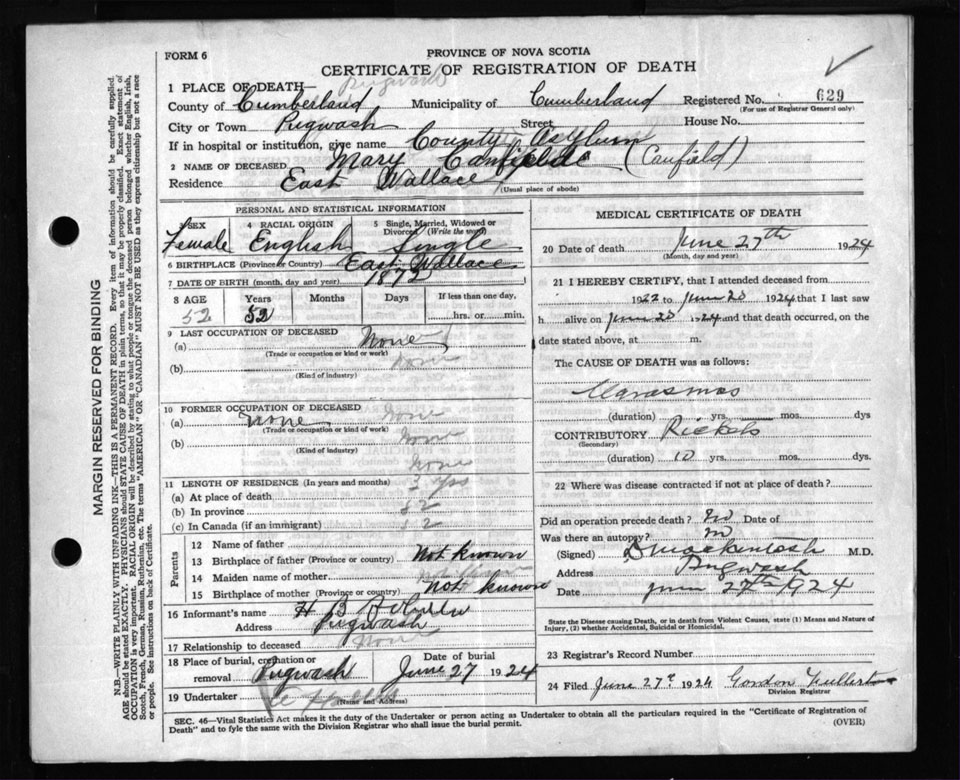 PROVINCE OF NOVA SCOTIA
FORM 6
CERTIFICATE OF REGISTRATION OF DEATH
1 PLACE OF DEATH— Pugwash
County of Cumberland Municipality of Cumberland Registered No. 629
(For use of Registrar General only)
City or Town Pugwash Street House No.
If in hospital or institution, give name County Asylum
2 NAME OF DECEASED Mary Canfield (Canfield)
Residence East Wallace
(Usual place of abode)
PERSONAL AND STATISTICAL INFORMATION
SEX 4 RACIAL ORIGIN 5 Single, Married, Widowed or Divorced (Write the word)
Female English Single
6 BIRTHPLACE (Province or Country) East Wallace
7 DATE OF BIRTH (month, day and year) 1872
8 AGE Years Months Days If less than one day,
52 52 hrs. or min.
9 LAST OCCUPATION OF DECEASED
(a) None
(Trade or occupation or kind or work)
(b) None
(Kind of industry)
10 FORMER OCCUPATION OF DECEASED None
(a) None
(Trade or occupation or kind of work)
(b) None
(Kind of industry)
None
11 LENGTH OF RESIDENCE (In years and months) 3 yrs
(a) At place of death
(b) In province 52
(c) In Canada (if an immigrant) 52
Parents
12 Name of father
13 Birthplace of father (Province or country) Not known
14 Maiden name of mother
15 Birthplace of mother (Province or country) Not known
16 Informant's name H B
Address Pugwash
17 Relationship to deceased None
18 Place of burial, cremation or removal Pugwash Date of burial June 27 1924
19 Undertaker
(Name and Address)
MEDICAL CERTIFICATE OF DEATH
20 Date of death June 27th 1924
(Month, day and year)
21 I HEREBY CERTIFY, that I attended deceased from
1922 to June 20 1924 that I last saw
h alive on June 20 1924 and that death occurred, on the
date stated above, at m.
The CAUSE OF DEATH was as follows:
Marasmas
(duration) yrs. mos. dys
CONTRIBUTORY Rickets
(Secondary)
(duration) 10 yrs. mos. dys.
22 Where was disease contracted if not at place of death?
Did an operation precede death? no Date of
Was there an autopsy? no
(Signed) D Mackintosh M.D.
Address Pugwash
Date June 27th 1924
State the Disease causing Death, or in death from Violent Causes, state (1) Means and Nature of
Injury, (2) whether Accidental, Suicidal or Homicidal.
23 Registrar's Record Number
24 Filed June 27th 1924 Gordon Fullerton
Division Registrar
SEC. 46—Vital Statistics Act makes it the duty of the Undertaker or person acting as Undertaker to obtain all the particulars required in the "Certificate of Registration of
Death" and to fyle the same with the Division Registrar who shall issue the burial permit.
(OVER)
MARGIN RESERVED FOR BINDING
N.B.—WRITE PLAINLY WITH UNFADING INK—THIS IS A PERMANENT RECORD. Every item of information should be carefully supplied.
AGE should be stated EXACTLY. PHYSICIANS should STATE CAUSE OF DEATH in plain terms, so that it may be properly classified. Exact statement of
OCCUPATION is very important. RACIAL ORIGIN will be described by stating to what people or tongue the deceased person belonged whether English, Irish,
Scotch, French, German, Russian, Ruthenian, etc. The terms "AMERICAN" OR "CANADIAN" MUST NOT BE USED as they express citizenship but not a race
or people. See instructions on back of Certificate.